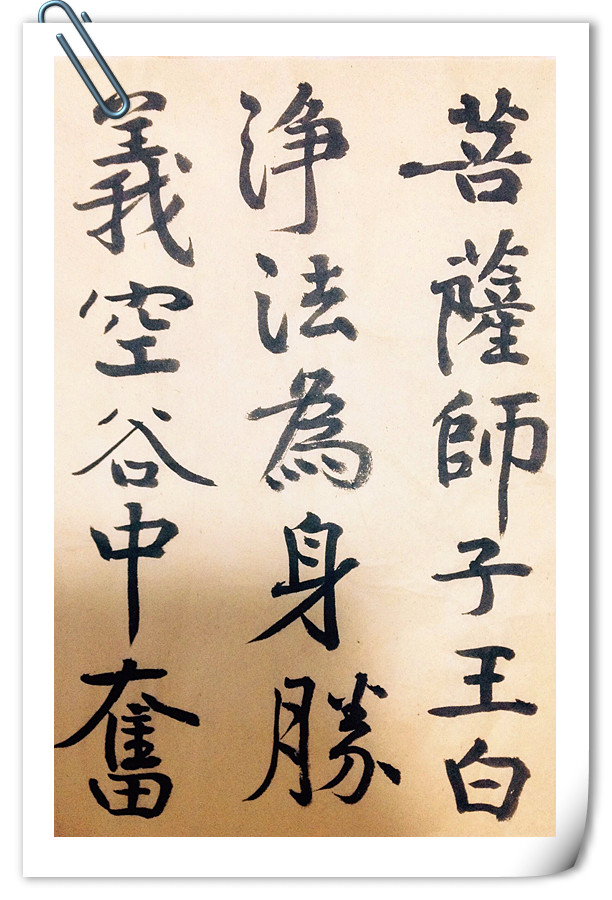 菩薩師子王白
淨法為身勝
義空谷中奮